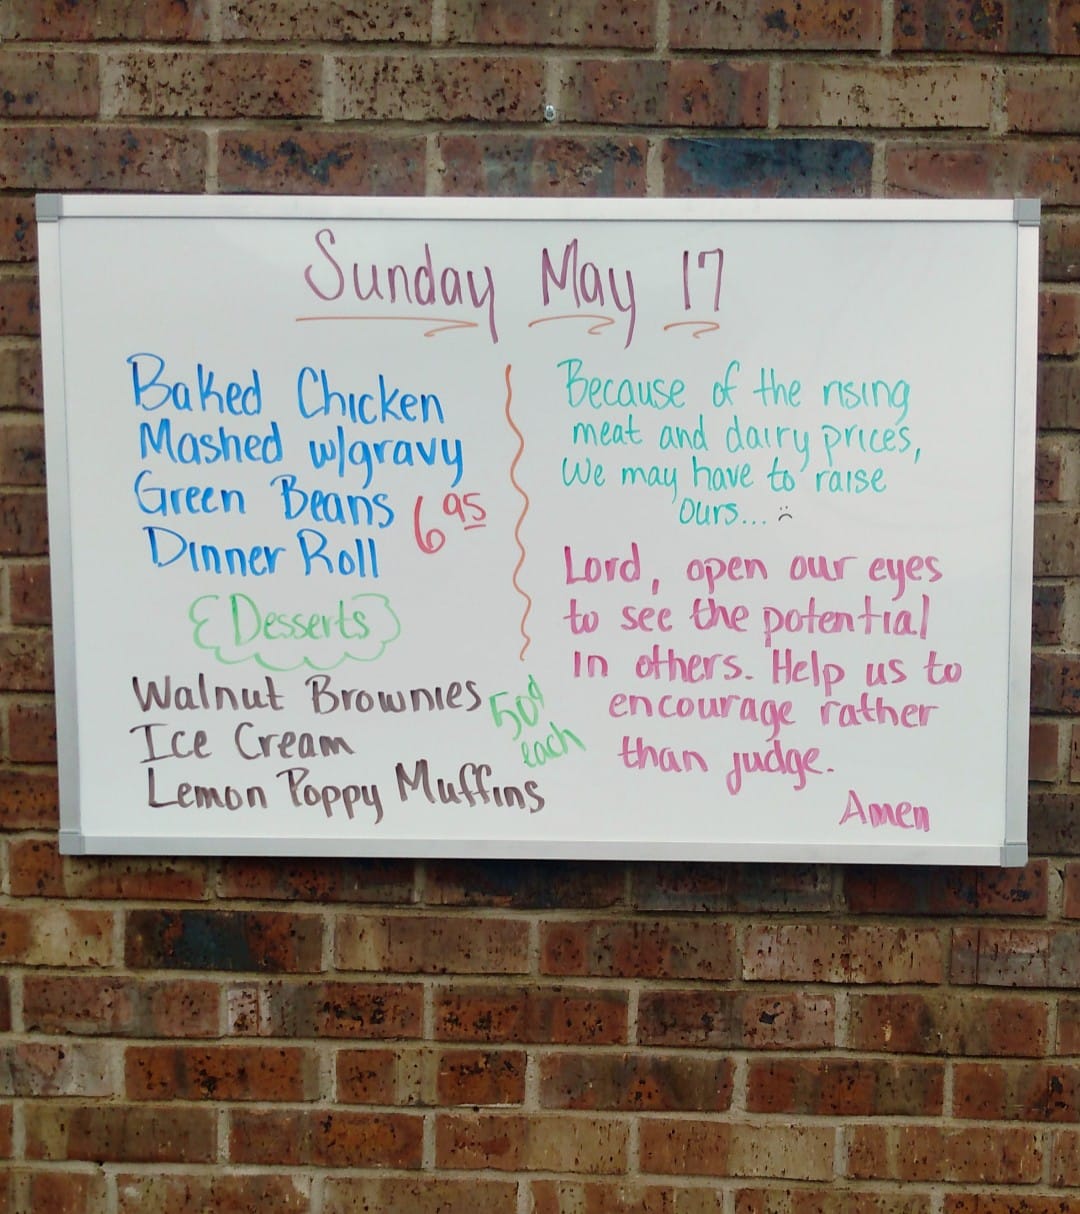 Sunday May 17
Baked Chicken
Mashed w/gravy
Green Beans
Dinner Roll
6 95
Desserts
Walnut Brownies
Ice Cream
Lemon Poppy Muffins
50¢
each
Because of the rising
meat and dairy prices,
We may have to raise
ours... ☹
Lord, open our eyes
to see the potential
in others. Help us to
encourage rather
than judge.
Amen